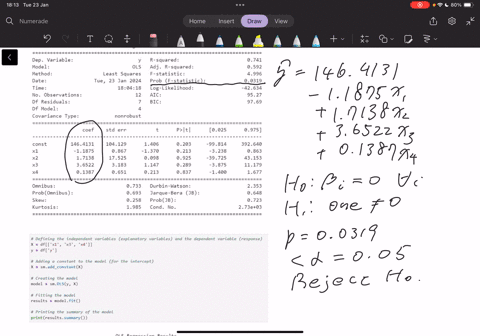 18:13 Tue 23 Jan
80%
Numerade
Home Insert Draw View
Dep. Variable: y R-squared: 0.741
Model: OLS Adj. R-squared: 0.592
Method: Least Squares F-statistic: 4.996
Date: Tue, 23 Jan 2024 Prob (F-statistic): 0.0319
Time: 18:04:18 Log-Likelihood: -42.634
No. Observations: 12 AIC: 95.27
Df Residuals: 7 BIC: 97.69
Df Model: 4
Covariance Type: nonrobust
coef std err t P>|t| [0.025 0.975]
const 146.4131 104.129 1.406 0.203 -99.814 392.640
x1 -1.1875 0.867 -1.370 0.213 -3.238 0.863
x2 1.7138 17.525 0.098 0.925 -39.725 43.153
x3 3.6522 3.183 1.147 0.289 -3.875 11.179
x4 0.1387 0.651 0.213 0.837 -1.400 1.677
Omnibus: 0.733 Durbin-Watson: 2.353
Prob(Omnibus): 0.693 Jarque-Bera (JB): 0.648
Skew: 0.258 Prob(JB): 0.723
Kurtosis: 1.985 Cond. No. 2.73e+03
# Defining the independent variables (explanatory variables) and the dependent variable (response)
y = df['y']
# Adding a constant to the model (for the intercept)
X = sm.add_constant(X)
# Creating the model
model = sm.OLS(y, X)
# Fitting the model
results = model.fit()
# Printing the summary of the model
print(results.summary())
OLS Regression Results
ŷ = 146.4131
- 1.1875x₁
+ 1.7138x₂
+ 3.6522x₃
+ 0.1387x₄
H₀: βᵢ = 0 ∀ᵢ
H₁: one ≠ 0
p = 0.0319
< α = 0.05
Reject H₀.